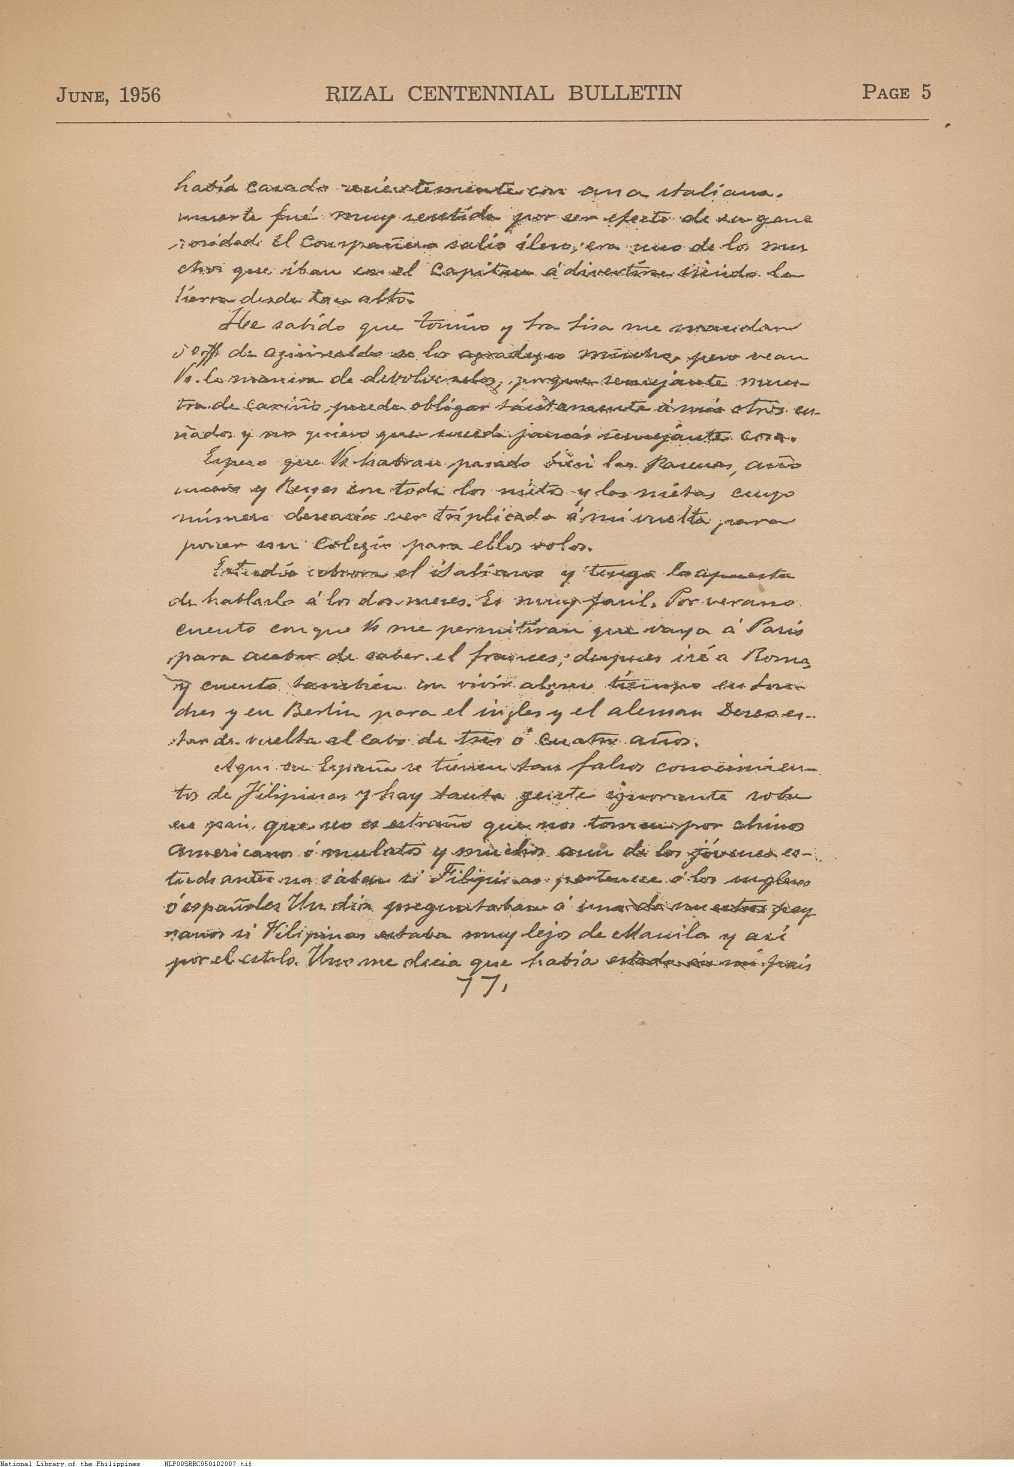 June, 1956 RIZAL CENTENNIAL BULLETIN Page 5
había casado recientemente con una italiana.
muerte fué muy sentida por ser efecto de su gene
rosidad. El Compañero salió ileso; era uno de los mu
chos que iban con el Capitan á divertirse viendo la
tierra desde tan alto.
He sabido que Tonino y Sra Sisa me mandan
de aguinaldo se los agradezco mucho, pero vean
Vs. la manera de devolverselos, porque semejante mues-
tra de cariño, pueda obligar tácitamente á mis otros cu-
ñados y no quiero que suceda jamás semejante cosa.
Espero que Vs. habran pasado bien las Pascuas, año
nuevo y Reyes con todos los nietos y las nietas cuyo
número desearía ver triplicado á mi vuelta para
poner un Colegio para ellos solos.
Estudio ahora el italiano y tengo la apuesta
de hablarlo á los dos meses. Es muy facil. Por verano
cuento con que Vs me permitiran que vaya á Paris
para acabar de saber el frances; despues iré a Roma,
y cuento tambien con vivir algun tiempo en Lon-
dres y en Berlin para el ingles y el aleman Deseo es-
tar de vuelta al cabo de tres ó cuatro años.
Aqui en España se tienen tan falsos conocimien-
tos de Filipinas y hay tanta gente ignorante sobre
su pais, que no es estraño que nos tomen por chinos
americanos ó mulatos y muchos aun de los jóvenes es-
tudiantes no saben si Filipinas pertenece á los ingleses
ó españoles Un dia preguntaban á uno de nuestros pay
sanos si Filipinas estaba muy lejos de Manila y asi
por el estilo. Uno me decia que había estado en mi pais
77,
National Library of the Philippines NLP00SRRC050102007.tif